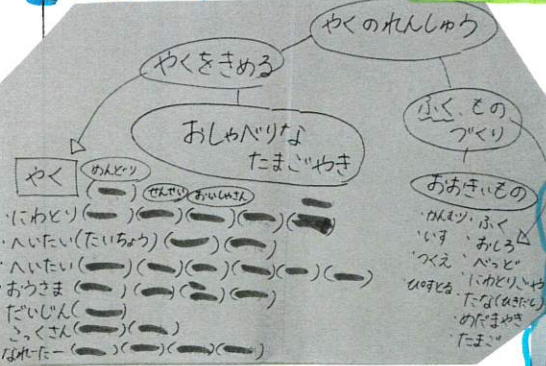 やくのれんしゅう
やくをきめる
おしゃべりな
たまごやき
ふく、もの
づくり
おおきいもの
やく
めんどり
せんせい
おいしゃさん
・にわとり( )( )( )( )( )
・へいたい(たいちょう)( )( )
・へいたい( )( )( )( )( )( )
・おうさま( )( )( )
だいじん( )
こっくさん( )( )
なれーたー( )( )( )( )
・かんむり・ふく
・いす・おしろ
・つくえ・べっど
・ぴすとる・にわとりごや
・たな(ひきだし)
・めだまやき
・たまご